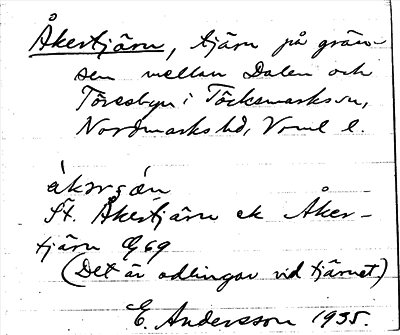 Åkertjärn, tjärn på grän-
sen mellan Dalen och
Töresbyn i Töcksmarks sn,
Nordmarks hd, Vrml l.
åkərɟǽn
St. Åkertjärn ek Åker-
tjärn G69
(Det är odlingar vid tjärnet)
E. Andersson 1935.